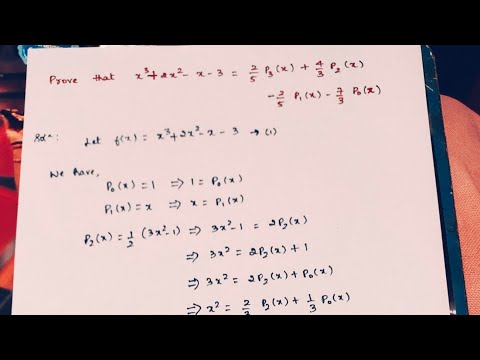 Prove that x³+2x²-x-3 = 2/5 P₃(x) + 4/3 P₂(x)
-2/5 P₁(x) - 7/3 P₀(x)
Solⁿ: Let f(x) = x³+2x²-x-3 → (1)
We have,
P₀(x)=1 ⇒ 1 = P₀(x)
P₁(x)=x ⇒ x = P₁(x)
P₂(x)=1/2 (3x²-1) ⇒ 3x²-1 = 2P₂(x)
⇒ 3x² = 2P₂(x)+1
⇒ 3x² = 2P₂(x)+P₀(x)
⇒ x² = 2/3 P₂(x) + 1/3 P₀(x)